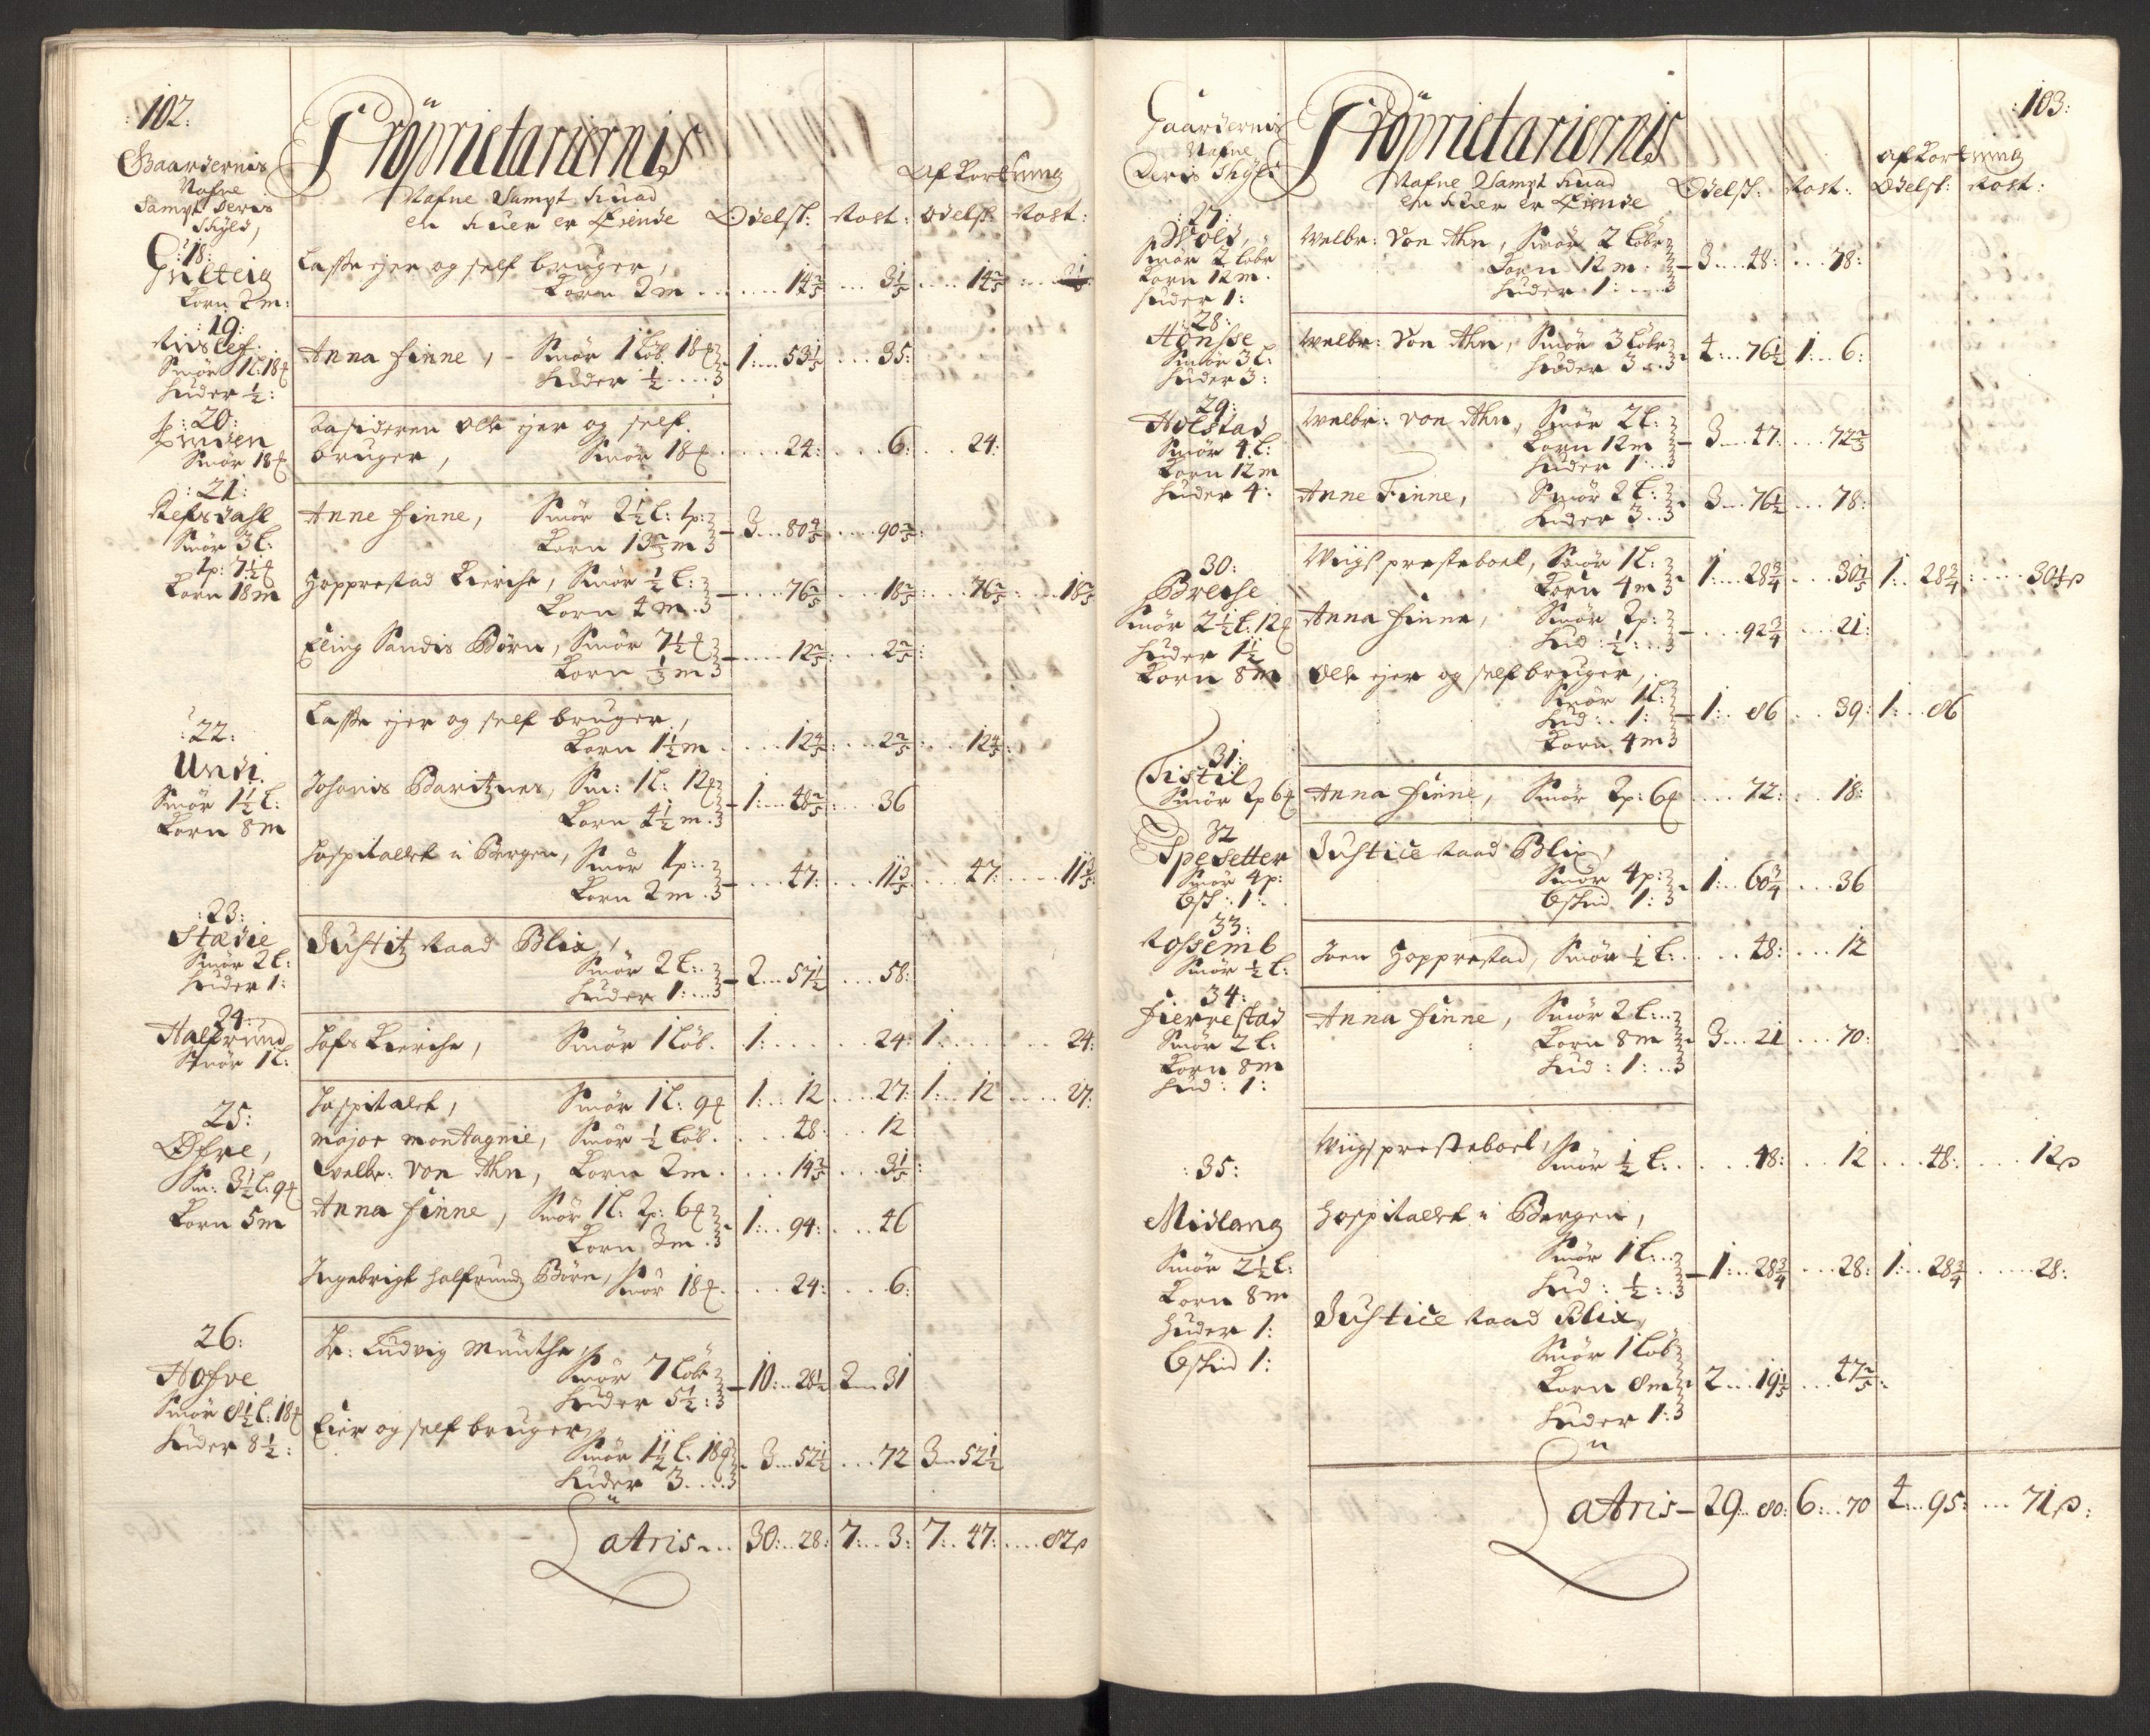 :102:
Gaardernis
Nafne
Sampt deris
Skyld,
Proprietariernis
Nafne Sampt huad
en huer er Eiende
Odelsk:
Rost:
Afkortning
Odelsk:
Rost:
:18:
Hilteig
Korn 2m:
Lasse ejer og self bruger,
Korn 2m ... 14 2/5 ... 3 1/5 ... 14 2/5 ... 3 1/5
:19:
Smör 1l: 18
Huder 1/2:
Anna Finne, Smör 1 løb 18
Huder 1/2 1: 53 1/5 ... 35:
:20:
Linden
Smör 18
Ole ejer og self
bruger, Smör 18 ... 24: ... 6: ... 24:
:21:
Refsdahl
Smör 3l:
1p: 7 1/2
Korn 18m
Anne Finne, Smör 2 1/2 l: 1p:
Korn 13 2/3 m 3 ... 80 4/5 ... 90 2/5:
Hopprestad Kierche, Smör 1/2 l:
Korn 4m ... 76 2/5 ... 18 2/5: ... 76 2/5: ... 18 2/5
Elling Sandis Börn, Smör 7 1/2
Korn 1/3 m ... 12 2/5: ... 2 2/5:
:22:
Undi
Smör 1 1/2 l:
Korn 8m
Lasse ejer og self bruger,
Korn 1 1/2 m ... 12 4/5: ... 2 2/5: ... 12 4/5:
Johanis Baritznes, Sm: 1l: 12
Korn 4 1/2 m 1: ... 48 2/5: ... 36
Hospitallet i Bergen, Smör 1p:
Korn 2m ... 47: ... 11 3/5 ... 47: ... 11 3/5:
:23:
Stædie
Smör 2l:
Huder 1:
Justitz Raad Blix,
Smör 2l:
Huder 1: 2 ... 57 1/2 ... 58:
24:
Halfrund
Smör 1l:
Hofs Kierche, Smör 1 løb. 1: ... 24: 1: ... 24:
25:
Øfre,
Sm: 3 1/2 l: 9
Korn 5m
Hospitalet, Smör 1l: 9 1: 12 ... 27: 1: 12 ... 27:
Major Montagnie, Smör 1/2 løb. ... 48: ... 12
Welbr: Von Ahn, Korn 2m ... 14 2/5 ... 3 1/5:
Anna Finne, Smör 1l: 2p: 6
Korn 3m 1: ... 94: ... 46
Ingebrigt Halfrunds Börn, Smör 18 ... 24: ... 6:
26:
Hofve
Smör 8 1/2 l: 18
Huder 8 1/2:
Hr: Ludvig Munthe,
Smör 7 løbe
Huder 5 1/2: 10: ... 28 1/2 2 ... 31
Eier og self bruger,
Smör 1 1/2 l: 18
Huder 3 3 ... 52 1/2 ... 72 3 ... 52 1/2
Latris ... 30: 28: 7: 3: 7: 47: ... 82
:103:
Gaardernis
Nafne
Deris Skyld
Proprietariernis
Nafne Sampt huad
en huer er Eiende
Odelsk:
Rost:
Afkortning
Odelsk:
Rost:
:27:
Wold,
Smör 2 løbe
Korn 12m.
Huder 1:
Welbr: Von Ahn, Smör 2 løbe
Korn 12m:
Huder 1: 3 ... 48: ... 78:
:28:
Hönsse
Smör 3l:
Huder 3:
Welbr: Von Ahn, Smör 3 løbe
Huder 3 4 ... 76 1/2 1: 6:
29:
Holstad
Smör 4l:
Korn 12m
Huder 4:
Welbr: Von Ahn, Smör 2l:
Korn 12m
Huder 1: 3 ... 47: ... 72 2/3
Anne Finne, Smör 2l:
Huder 3 3 ... 76 1/2 ... 78:
30:
Brecke
Smör 2 1/2 l: 12
Huder 1 1/2
Korn 8m
Wigs presteboel, Smör 1l:
Korn 4m 1: 28 3/4 ... 30 1/5 1: 28 3/4: ... 30 1/5
Anna Finne, Smör 2p:
Hud: 1/2: ... 92 3/4 ... 21:
Ole ejer og self bruger,
Smör 1l:
Hud: 1:
Korn 4m 1: 86 ... 39: 1: 86
31:
Tistil
Smör 2p 6
Anna Finne, Smör 2p: 6 ... 72: ... 18:
32
Spesetter
Smör 4p:
1:
Justice Raad Blix,
Smör 4p:
1: 1: 60 3/4 ... 36
33:
Rossemb
Smör 1/2 l:
Joen Hopprestad, Smör 1/2 l: ... 48: ... 12
34:
Fierrestad
Smör 2l:
Korn 8m
Hud: 1:
Anna Finne, Smör 2l:
Korn 8m
Hud: 1: 3 ... 21 ... 70:
:35:
Midlang
Smör 2 1/2 l:
Korn 8m
Huder 1:
1:
Wigs presteboel,
Smör 1/2 l: ... 48: ... 12 ... 48: ... 12
Hospitallet i Bergen,
Smör 1l:
Hud: 1/2: 1: 28 3/4 ... 28: 1: 28 3/4 ... 28:
Justice Raad Blix,
Smör 1 løb
Korn 8m
Huder 1: 2 ... 19 1/5 ... 47 2/5:
Latris 29 80: 6: 70 4: 95: ... 71